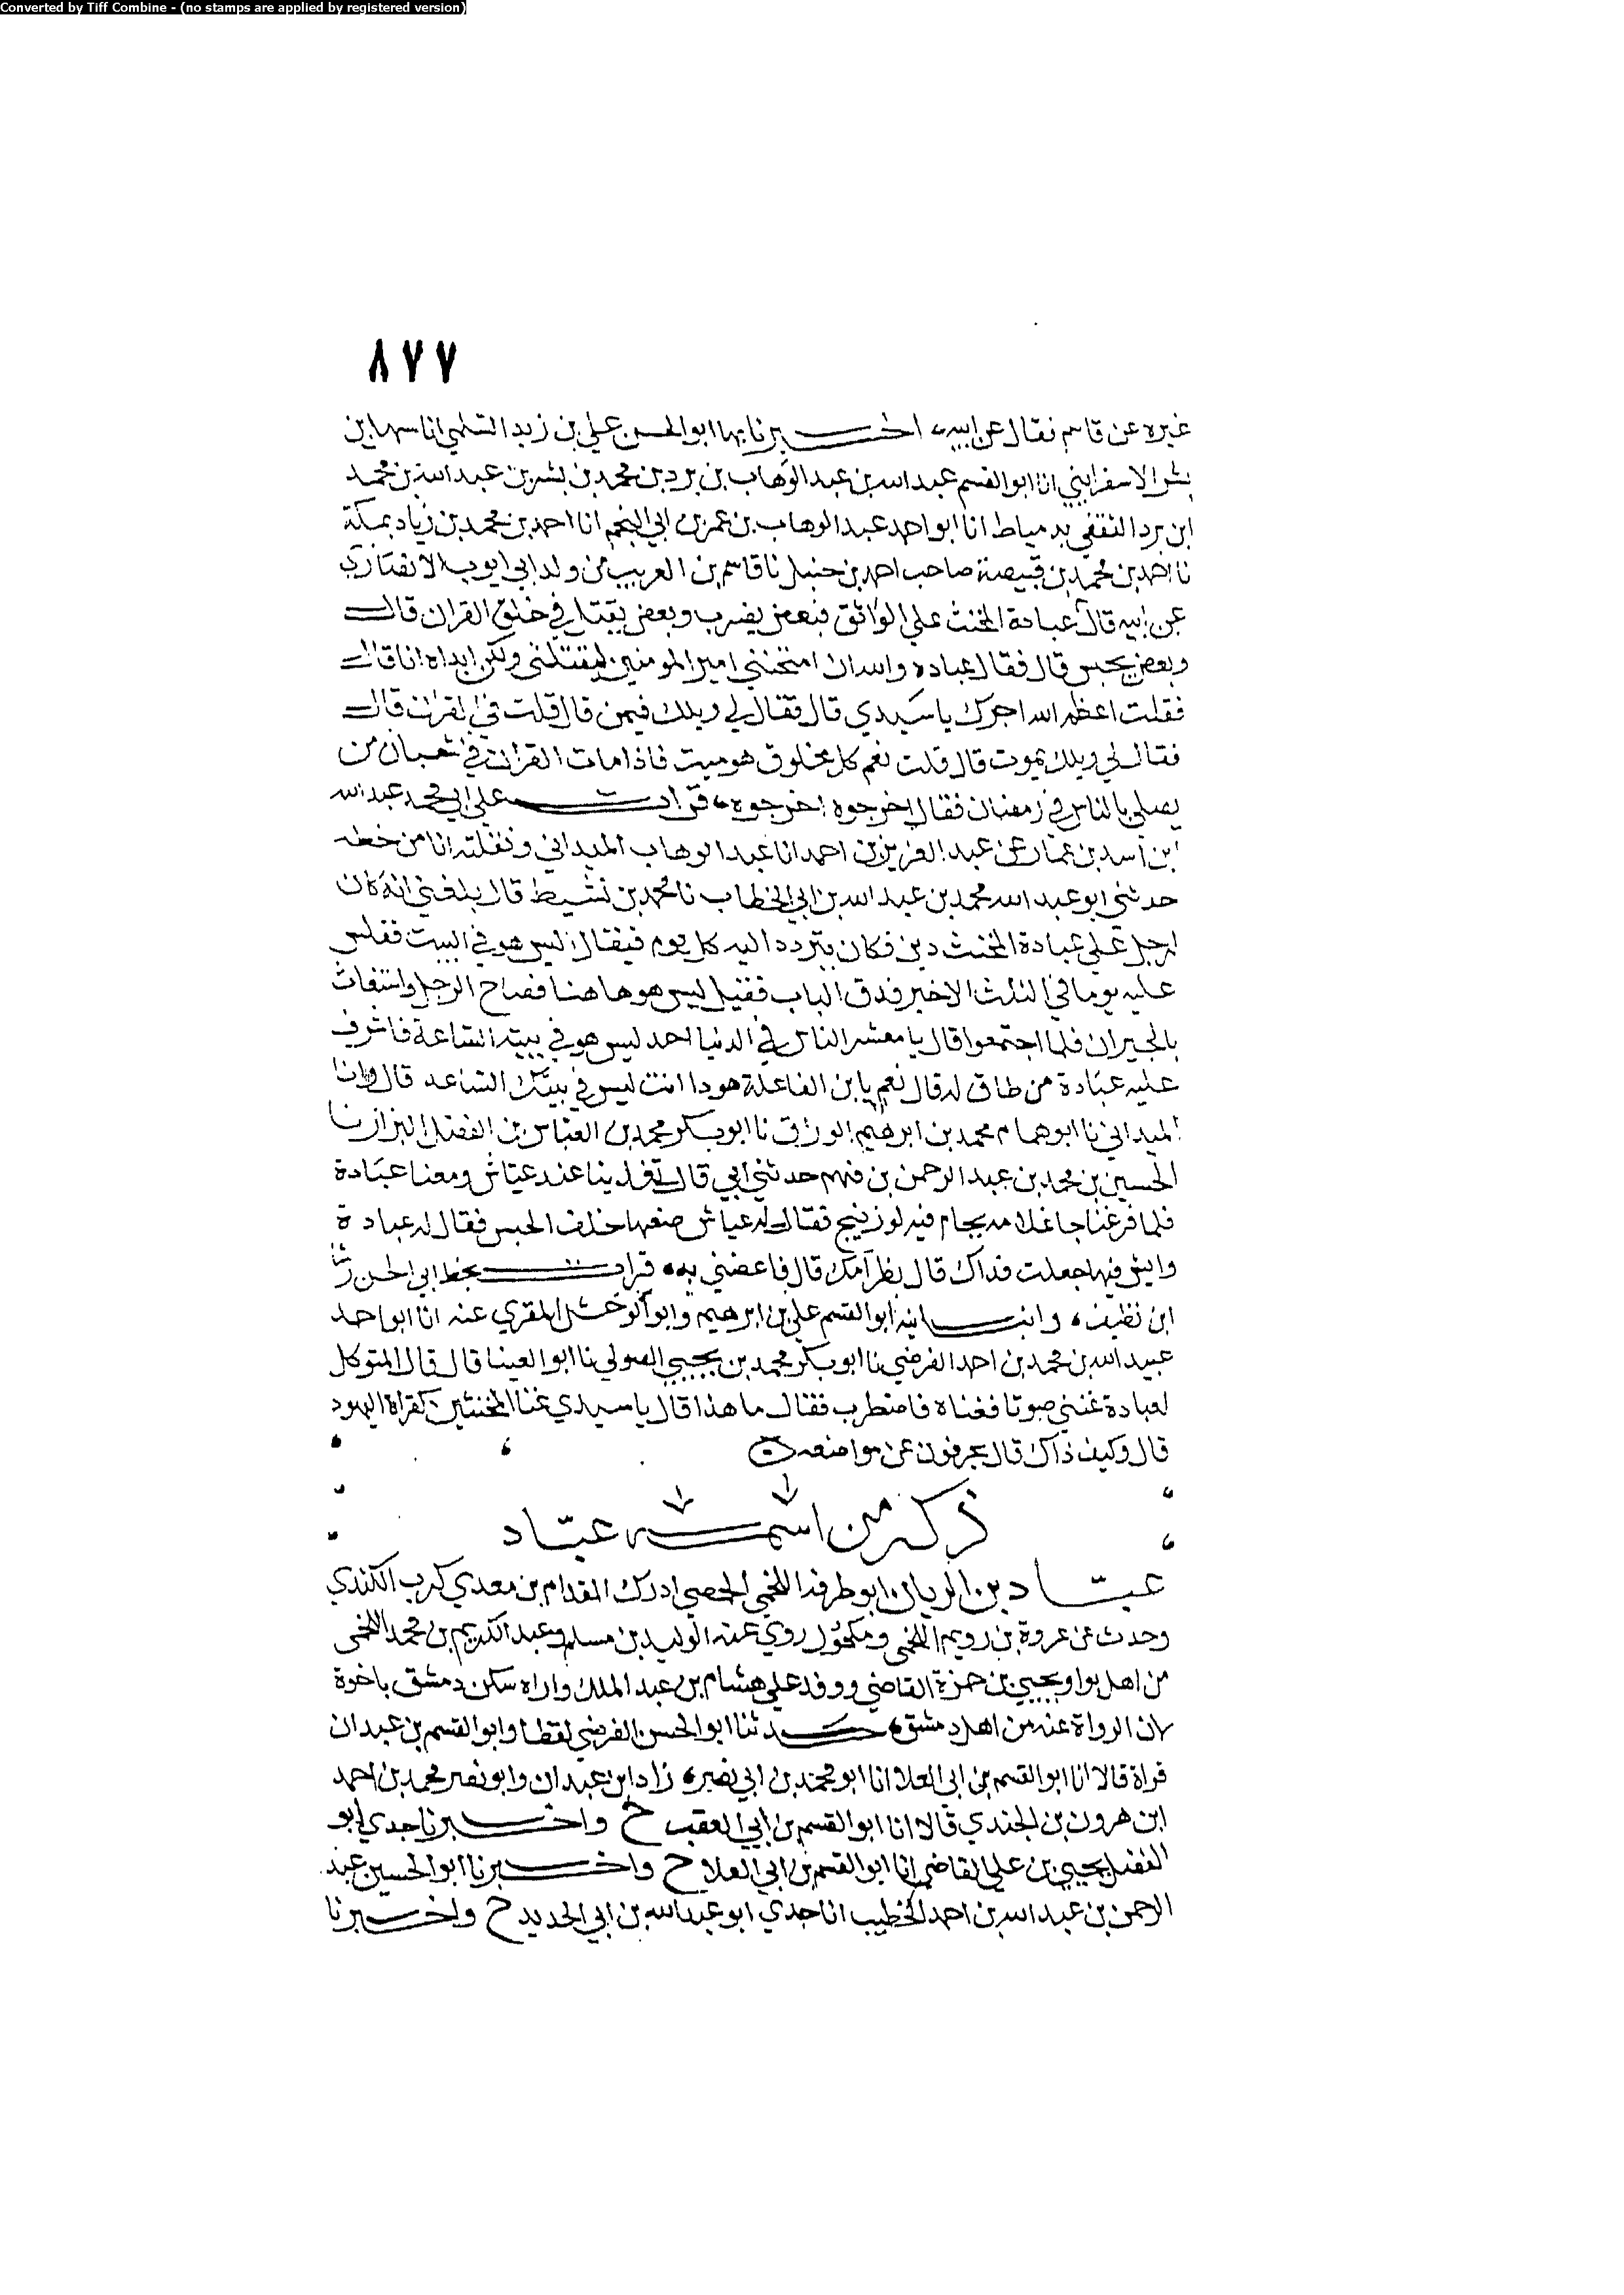 Converted by Tiff Combine - (no stamps are applied by registered version)
٨٧٧
غيره عن قاسم فقال عن ابيه، اخبرنا بها ابو الحسن علي بن زيد السلمي انا سهل بن
بشر الاسفرايني انا ابو القسم عبد الله بن عبد الوهاب بن برد بن محمد بن بشر بن عبد الله بن محمد
ابن برد الثقفي بدمياط انا ابو احمد عبد الوهاب بن عمر بن ابي النجم انا احمد بن محمد بن زياد بمكة
نا احمد بن محمد بن قبيصة صاحب احمد بن حنبل نا قاسم بن العريب من ولد ابي ايوب الانصاري
عن ابيه قال عبادة المخنث علي الواثق فبعض يضرب وبعض يقتل في خلق القران قال
وبعض يحبس قال فقال عباده والله ان امتحنني امير المومنين ليقتلني ولكن ابداه انا قال
فقلت اعظم الله اجرك يا سيدي قال فقال لي ويلك فيمن قال قلت في القران قال
فقال لي ويلك يموت قال قلت نعم كل مخلوق هو ميت فاذا مات القران في شعبان من
يصلي بالناس في رمضان فقال اخرجوه اخرجوه، قرات علي ابي محمد عبد الله
ابن اسد بن عمار عن عبد العزيز بن احمد انا عبد الوهاب الميداني ونقلته انا من خطه
حدثني ابو عبد الله محمد بن عبد الله بن ابي الخطاب نا محمد بن نشيط قال بلغني انه كان
لرجل علي عبادة المخنث دين فكان يتردد اليه كل يوم فيقال ليس هو في البيت فغلس
عليه يوما في الثلث الاخير فدق الباب فقيل ليس هو هاهنا فصاح الرجل واستغاث
بالجيران فلما اجتمعوا قال يا معشر الناس في الدنيا احد ليس هو في بيته الساعة فاشرف
عليه عبادة من طاق له قال نعم يا بن الفاعلة هوذا انت ليس في بيتك الساعه قال وانا
الميداني نا ابو همام محمد بن ابرهيم الوراق نا ابو بكر محمد بن العباس بن الفضل البزاز نا
الحسين بن محمد بن عبد الرحمن بن فهم حدثني ابي قال تغدينا عند عياش ومعنا عبادة
فلما فرغنا جا غلامه بجام فيه لوزينج فقال له عياش ضعها خلف الحبس فقال له عبادة
وايش فيها جعلت فداك قال بظر امك قال فاعضني به، قرات بخط ابي الحسن رشا
ابن نظيف، وانبانيه ابو القسم علي بن ابرهيم وابو الوحش المقري عنه انا ابو احمد
عبيد الله بن محمد بن احمد الفرضي نا ابو بكر محمد بن يحيي الصولي نا ابو العينا قال قال المتوكل
لعبادة غنني صوتا فغناه فاضطرب فقال ما هذا قال يا سيدي غنا المخنثين كقراة اليهود
قال وكيف ذاك قال يحرفون عن مواضعه
ذكر من اسمه عباد
عباد بن الريان ابو طرفه اللخمي الحمصي ادرك المقدام بن معدي كرب الكندي
وحدث عن عروة بن رويم اللخمي ومكحول روي عنه الوليد بن مسلم وعبد الكريم بن محمد اللخمي
من اهل ويحيي بن حمزة القاضي ووفد علي هشام بن عبد الملك واراه سكن دمشق باخرة
لان الرواة عنه من اهل دمشق، حدثنا ابو الحسن الفرضي لفظا وابو القسم بن عبدان
قراة قالا انا ابو القسم بن ابي العلا انا ابو محمد بن ابي نصر، زاد ابن عبدان وابو نصر محمد بن احمد
ابن هرون بن الجندي قالا انا ابو القسم بن ابي العقب ح واخبرنا جدي ابو
الفضل يحيي بن علي القاضي انا ابو القسم بن ابي العلا ح واخبرنا ابو الحسين عبد
الرحمن بن عبد الله بن احمد الخطيب انا جدي ابو عبد الله بن ابي الحديد ح واخبرنا